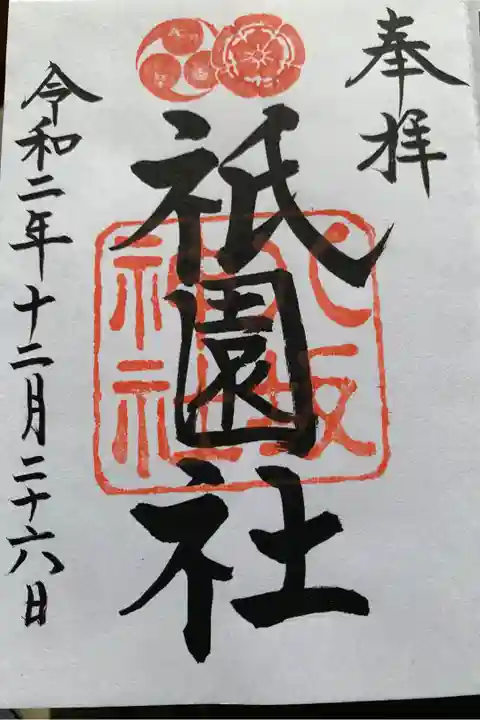 奉拝
祇園社
八坂
神社
令和二年十二月二十六日